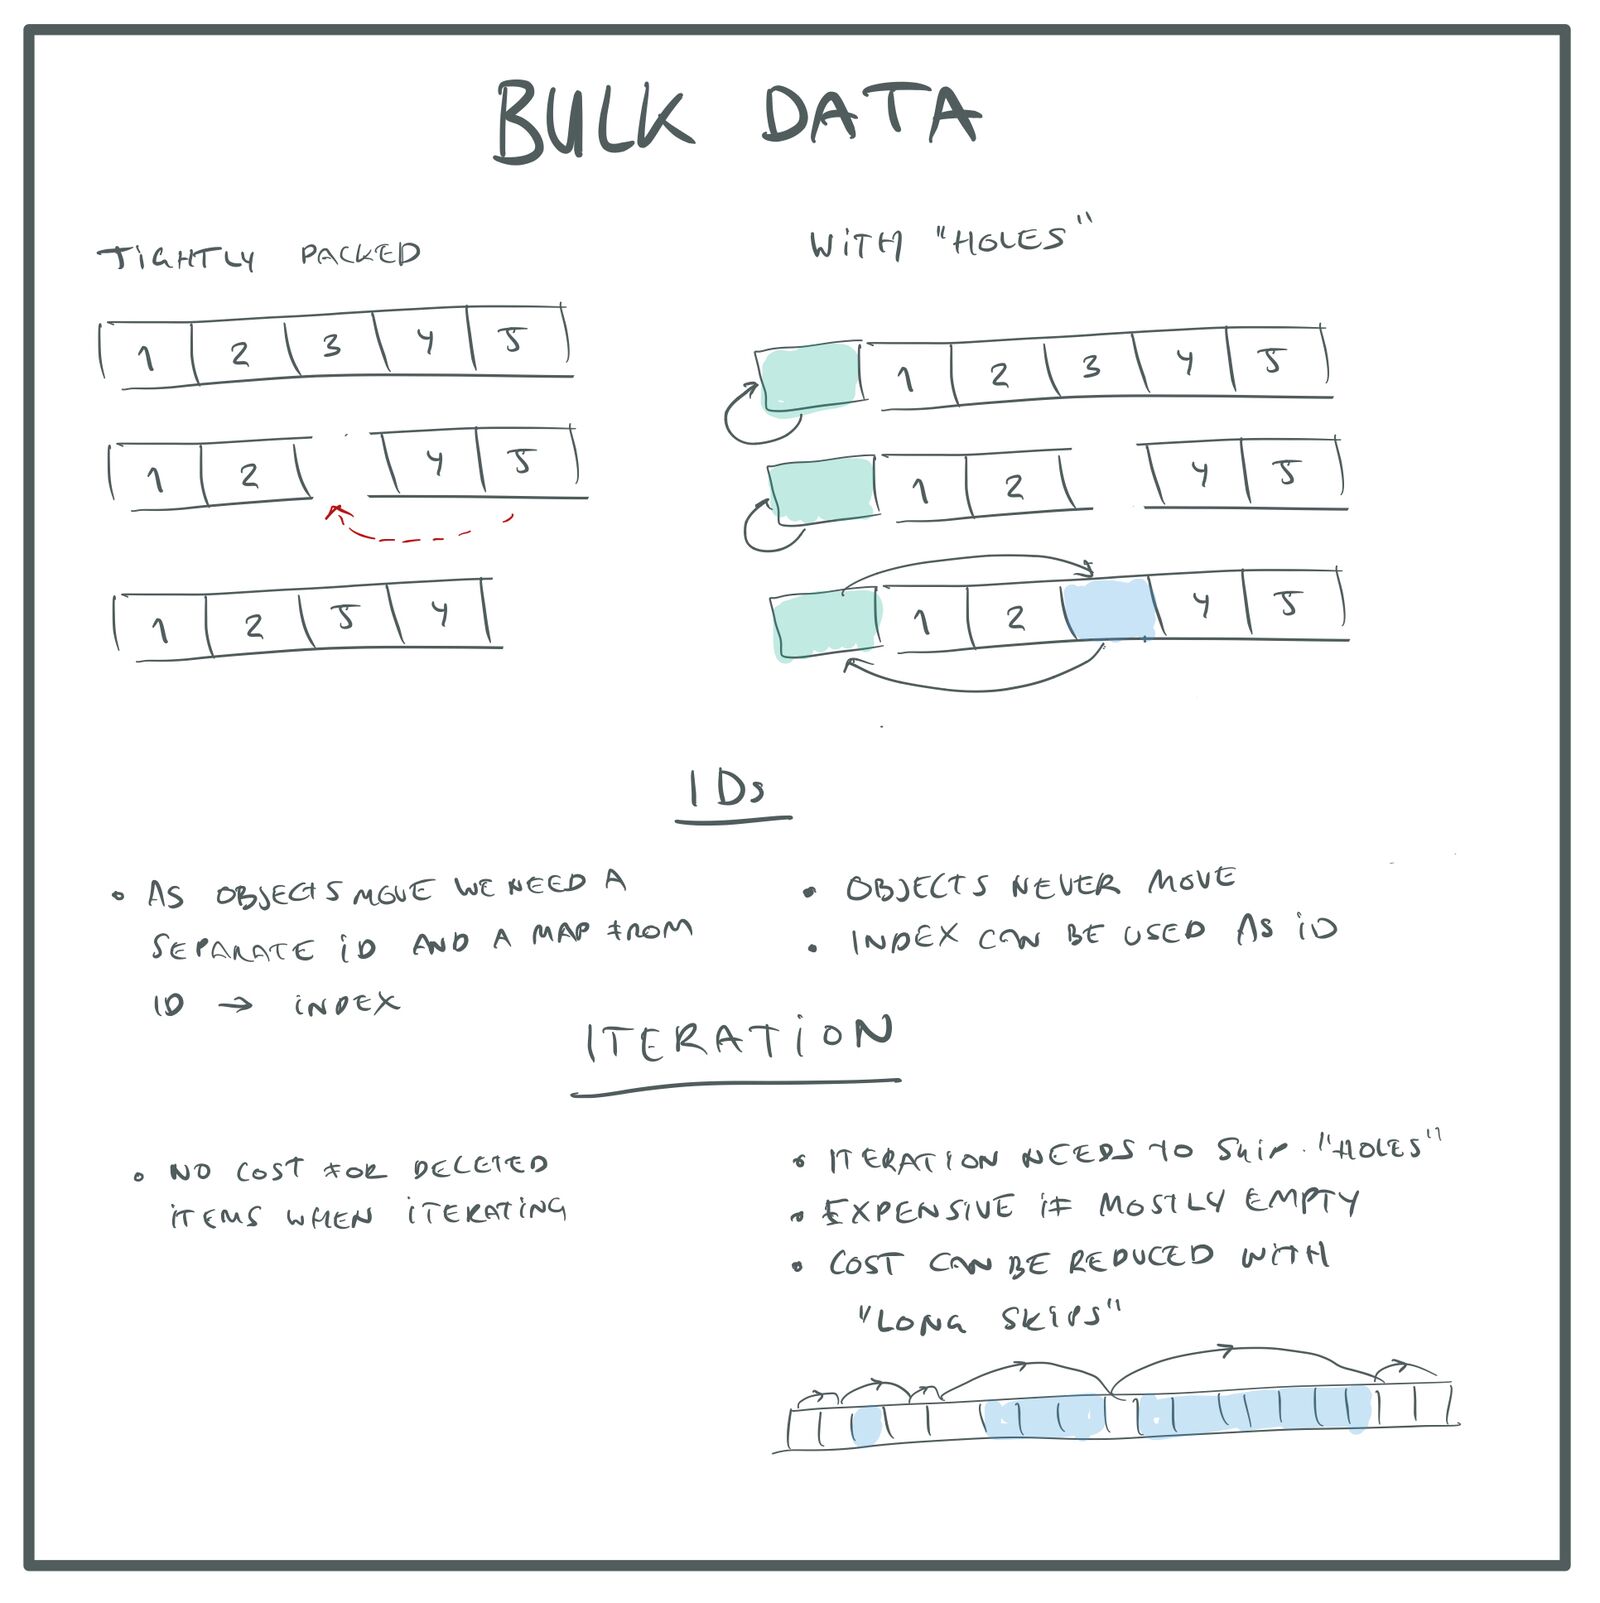 BULK DATA
TIGHTLY PACKED
1 2 3 4 5
1 2 4 5
1 2 5 4
WITH "HOLES"
1 2 3 4 5
1 2 4 5
1 2 4 5
IDs
• AS OBJECTS MOVE WE NEED A
SEPARATE ID AND A MAP FROM
ID → INDEX
• OBJECTS NEVER MOVE
• INDEX CAN BE USED AS ID
ITERATION
• NO COST FOR DELETED
ITEMS WHEN ITERATING
• ITERATION NEEDS TO SKIP "HOLES"
• EXPENSIVE IF MOSTLY EMPTY
• COST CAN BE REDUCED WITH
"LONG SKIPS"